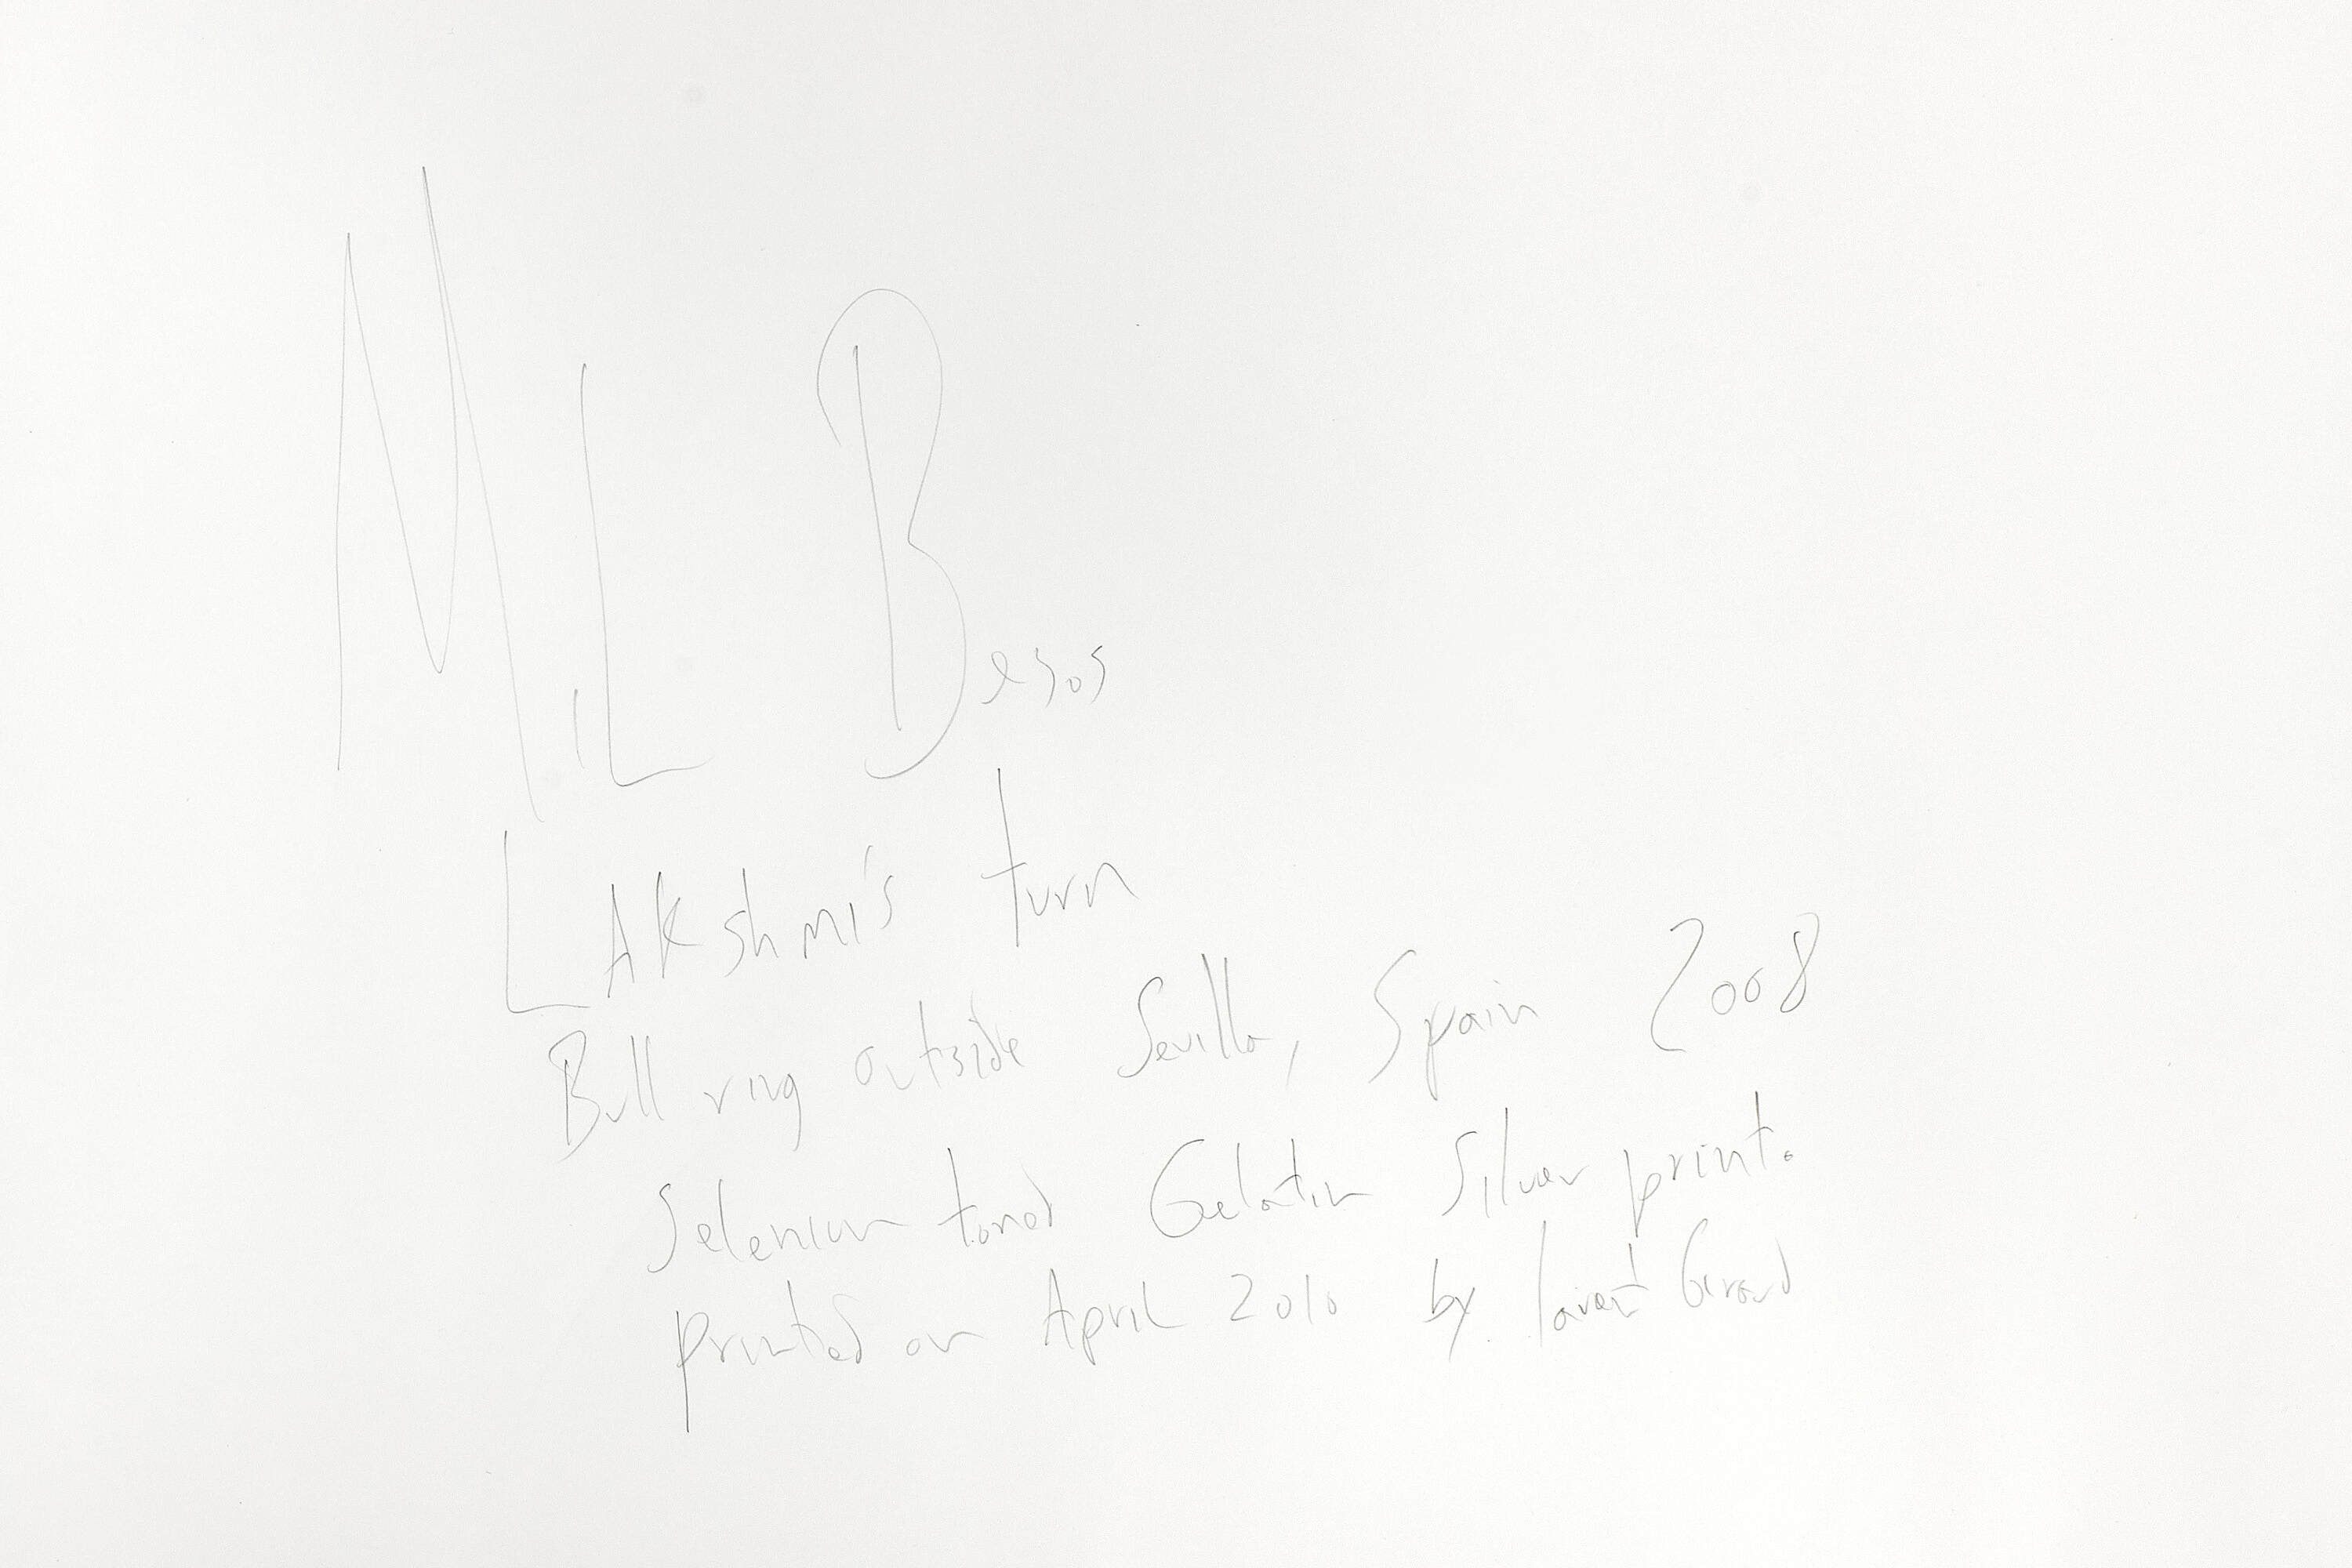 MiL Besos
LAKshmi's turn
Bull ring outside Sevilla, Spain 2008
Selenium toned Gelatin Silver print.
printed on April 2010 by Girard